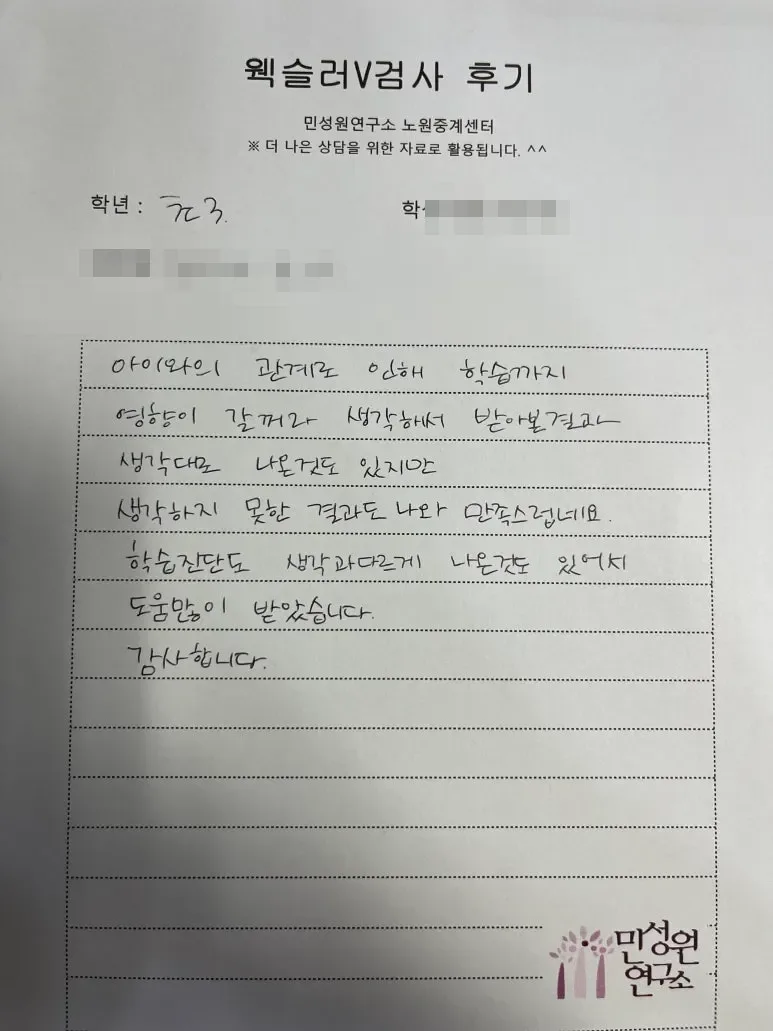 웩슬러V검사 후기
민성원연구소 노원중계센터
※ 더 나은 상담을 위한 자료로 활용됩니다. ^^
학년 : 초3.
학
아이와의 관계로 인해 학습까지
영향이 갈꺼라 생각해서 받아본결과
생각대로 나온것도 있지만
생각하지 못한 결과도 나와 만족스럽네요.
학습진단도 생각과다르게 나온것도 있어서
도움많이 받았습니다.
감사합니다.
민성원
연구소